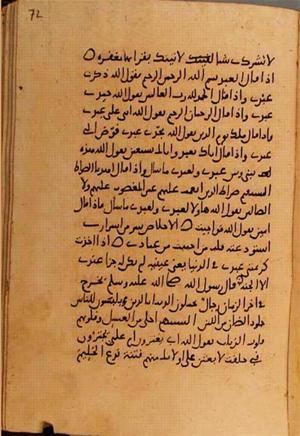 72
لا تشرك بي شيا لاتيتك بقرابها مغفرة ه
اذا قال العبد بسم الله الرحمن الرحيم يقول الله ذكرني
عبدي واذا قال الحمد لله رب العالمين يقول الله حمدني
عبدي واذا قال الرحمن الرحيم يقول الله اثنى علي عبدي
واذا قال ملك يوم الدين يقول الله مجدني عبدي فوض الي
عبدي واذا قال اياك نعبد واياك نستعين يقول الله هذه
بيني وبين عبدي ولعبدي ما سأل واذا قال اهدنا الصراط
المستقيم صراط الذين انعمت عليهم غير المغضوب عليهم ولا
الضالين يقول الله هاولا لعبدي ولعبدي ما سأل فاذا قال
امين يقول الله قد اجبت ه الاخلاص سر من اسراري
استودعته قلب من احببت من عبادي ه اذا اخذت
كريمتي عبدي في الدنيا يعني عينيه لم يكن له جزا عندي
الا الجنة قال رسول الله صلى الله عليه وسلم يخرج
في اخر الزمان رجال يختلون الدنيا بالدين يلبسون للناس
جلود الضان من اللين السنتهم احلى من العسل وقلوبهم
قلوب الذياب يقول الله ابي يغترون ام علي يجترون
في حلفت لابعثن على اولايك منهم فتنة تدع الحليم